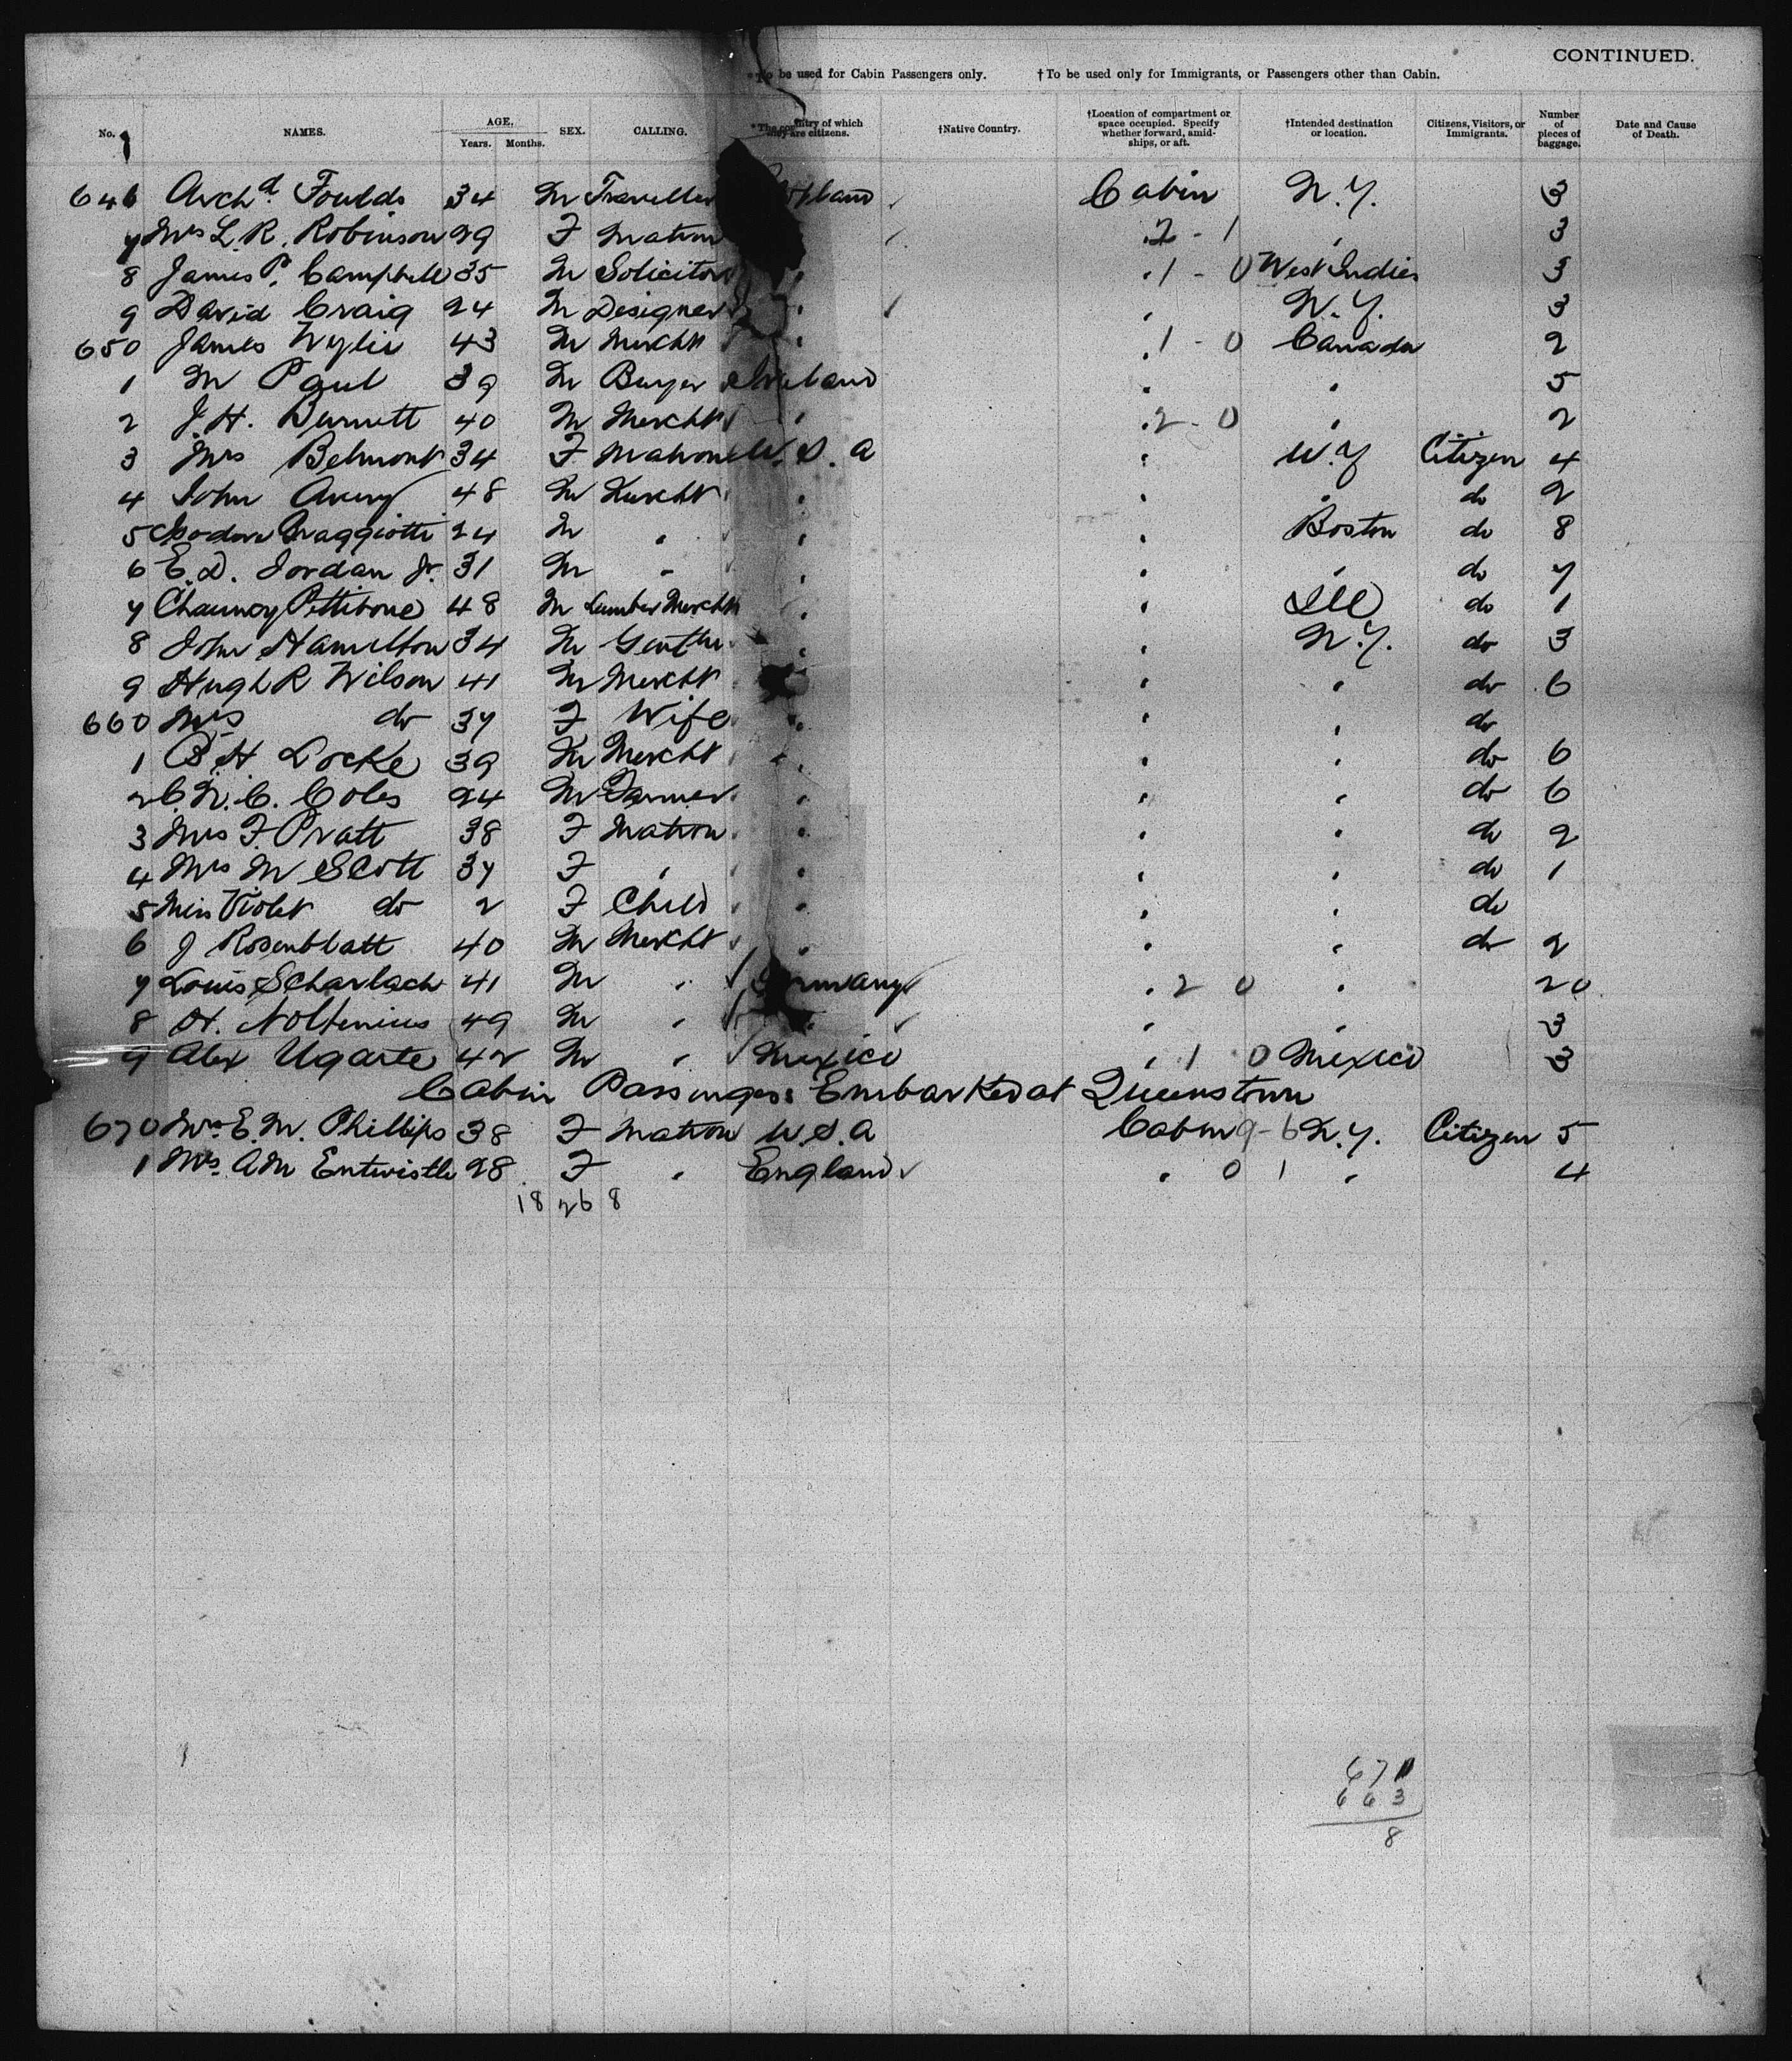 CONTINUED.
*To be used for Cabin Passengers only. †To be used only for Immigrants, or Passengers other than Cabin.
No. NAMES. AGE. Years. Months. SEX. CALLING. *The country of which they are citizens. †Native Country. †Location of compartment or space occupied. Specify whether forward, amidships, or aft. †Intended destination or location. Citizens, Visitors, or Immigrants. Number of pieces of baggage. Date and Cause of Death.
646 Archd Foulds 34 M Traveller Cabin N.Y. 3
7 Mrs L. R. Robinson 29 F Matron 2 - 1 " 3
8 James P. Campbell 35 M Solicitor " " 1 - 0 West Indies 3
9 David Craig 24 M Designer " " N.Y. 3
650 James Wylie 43 M Mercht " " 1 - 0 Canada 2
1 M Paul 39 M Buyer Ireland " " 5
2 J. H. Burnett 40 M Mercht " " 2 - 0 " 2
3 Mrs Belmont 34 F Matron U.S.A " N.Y Citizen 4
4 John Avery 48 M Mercht " " " do 2
5 Isodore Braggiotti 24 M " " " Boston do 8
6 E. D. Jordan Jr. 31 M " " " " do 7
7 Chauncy Pettibone 48 M Lumber Mercht " " Ill do 1
8 John Hamilton 34 M Gentln " " N.Y. do 3
9 Hugh R Wilson 41 M Mercht " " " do 6
660 Mrs do 37 F Wife " " " do
1 B. H Locke 39 M Mercht " " " do 6
2 C. N. C. Coles 24 M Farmer " " " do 6
3 Mrs F. Pratt 38 F Matron " " " do 2
4 Mrs M Scott 37 F " " " " do 1
5 Miss Violet do 2 F Child " " " do
6 J Rosenblatt 40 M Mercht " " " do 2
7 Louis Scharlach 41 M " Germany " 2 0 " 20
8 H. Noltenius 49 M " " " " 3
9 Alex Ugarte 42 M " Mexico " 1 0 Mexico 3
Cabin Passengers Embarked at Queenstown
670 Mrs E. M. Phillips 38 F Matron U.S.A Cabin 9-6 N.Y. Citizen 5
1 Mrs. A M Entwistle 28 F " England " 0 1 " 4
18 26 8
671
663
8